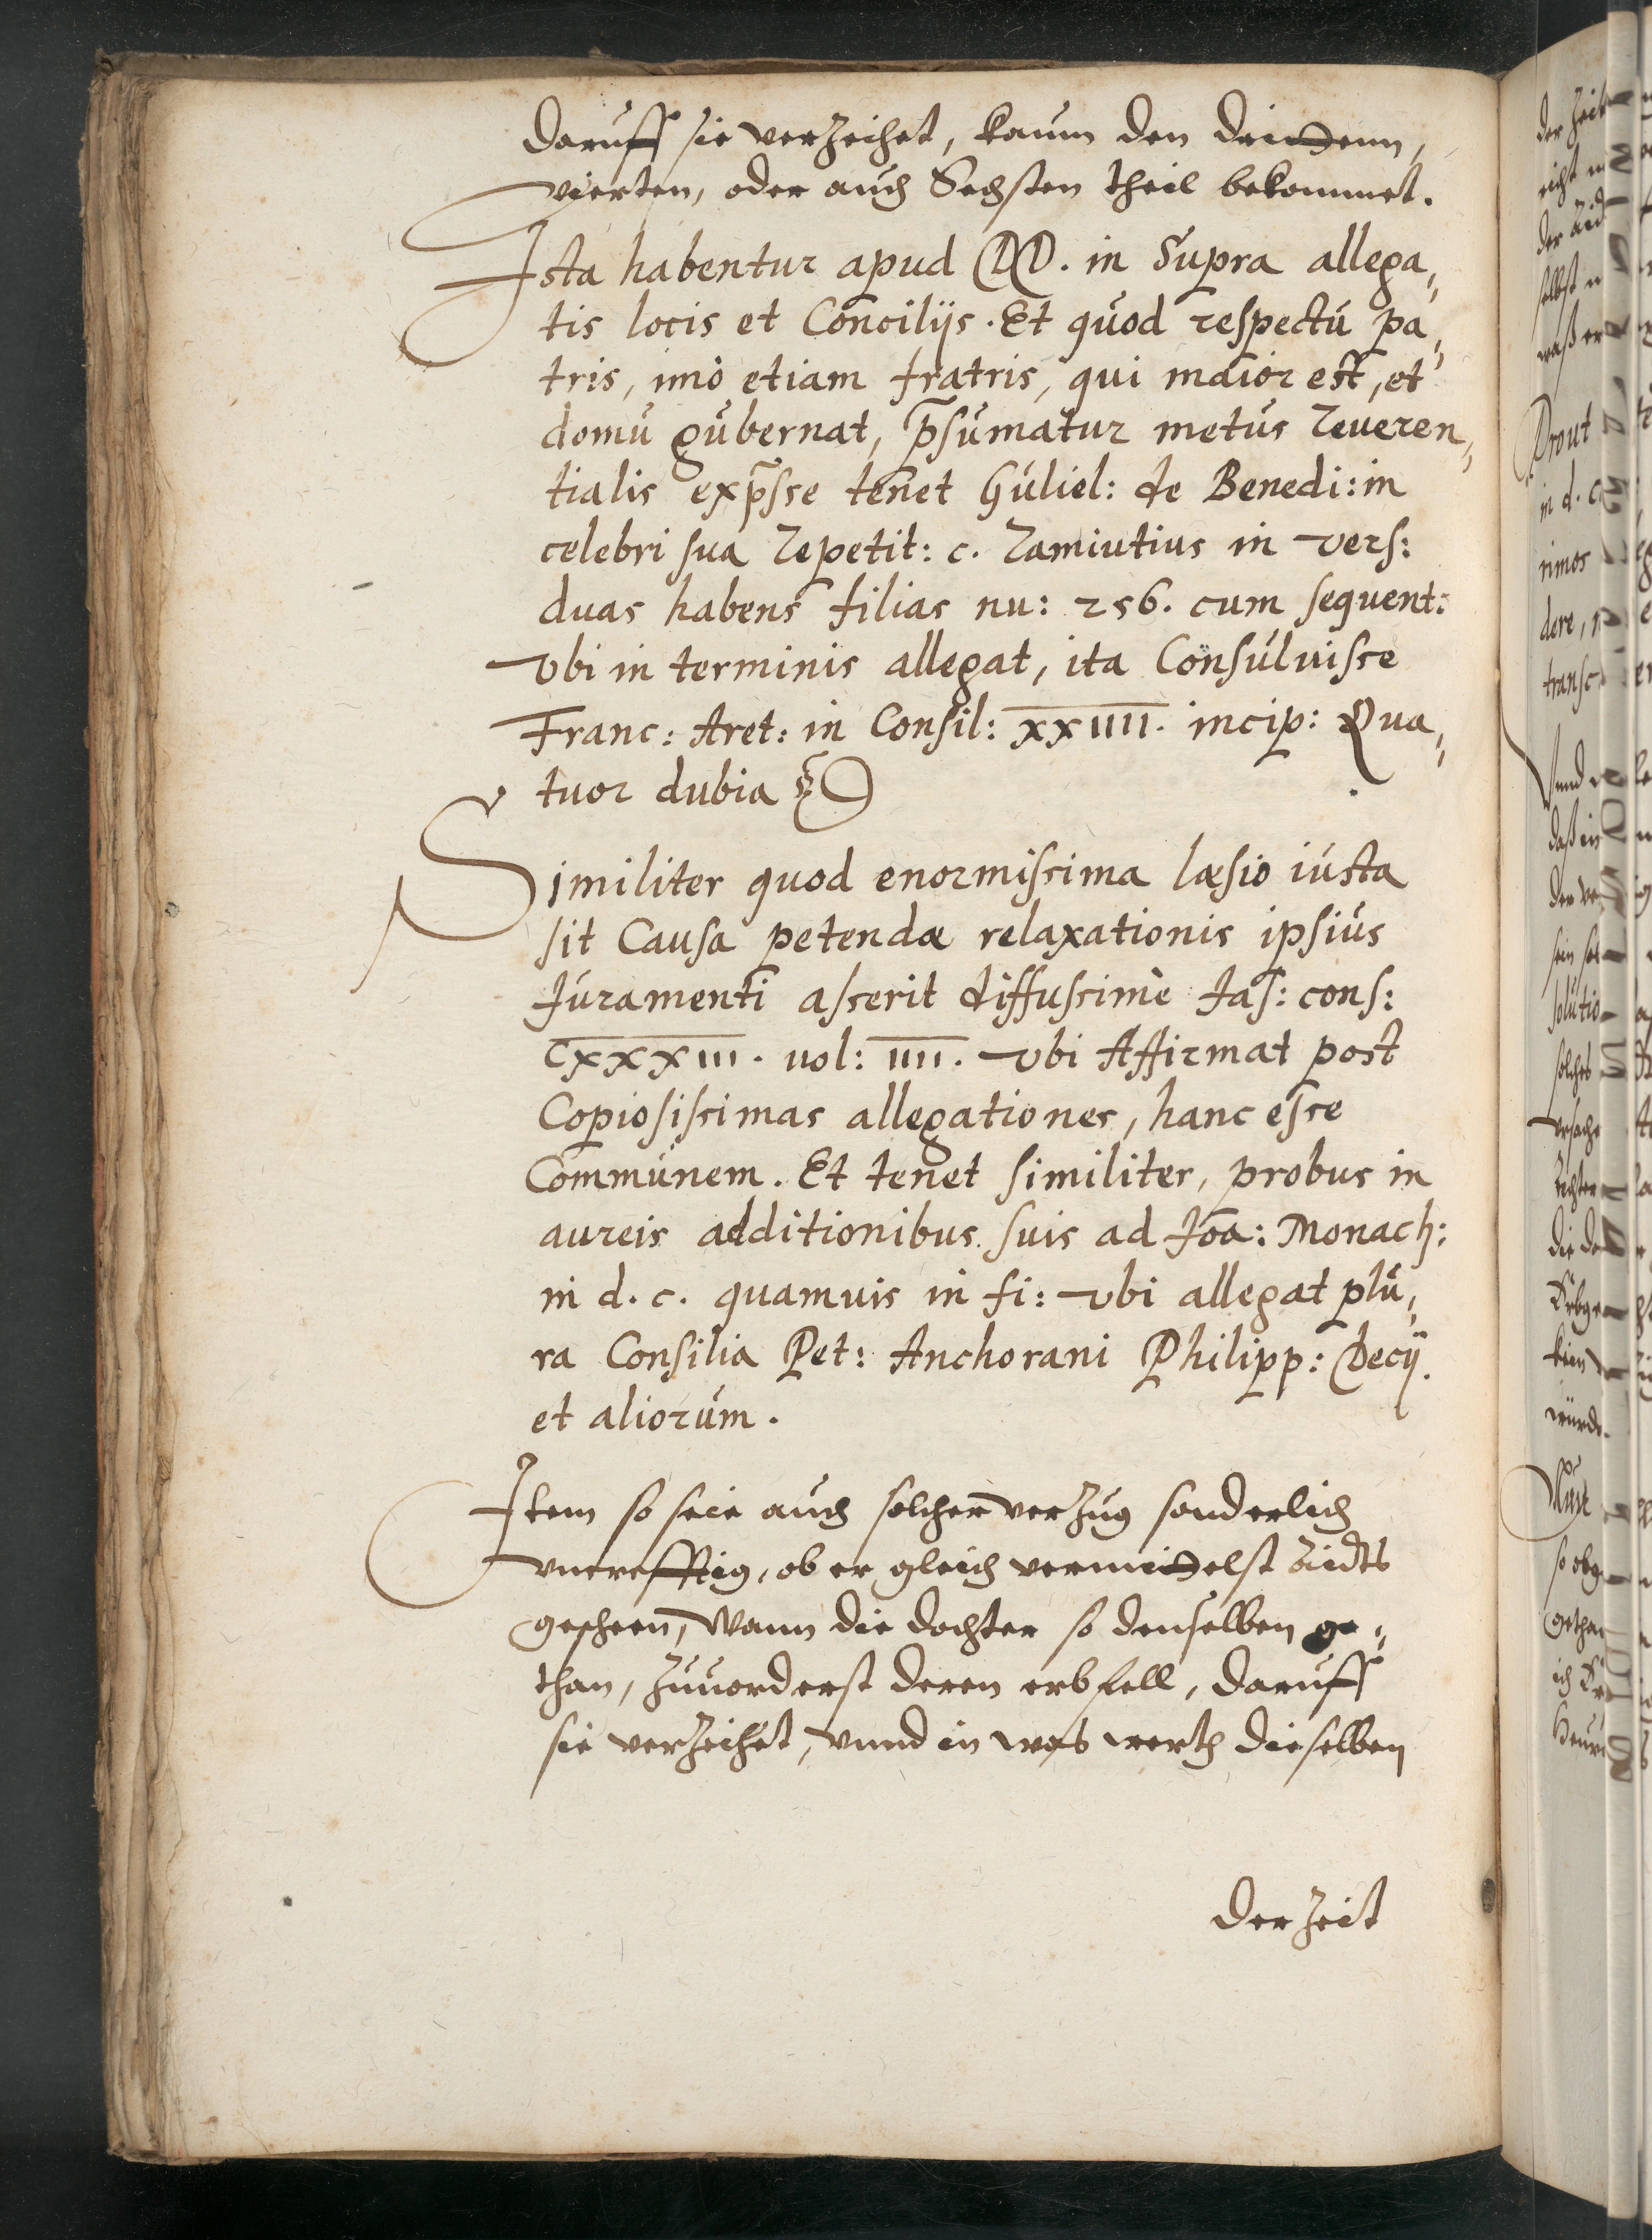 daruff sie verzeihet, kaum den drittenn,
vierten, oder auch Sechsten theil bekommet.
Ista habentur apud DD. in Supra allega„
tis locis et Conciliis. Et quod respectu pa„
tris, imò etiam fratris, qui maior est, et
domū gubernat, p̄sumatur metus reueren„
tialis exp̄sse tenet Guliel: de Benedi: in
celebri sua repetit: c. ramiutius in vers:
duas habens filias nu: 256. cum sequent:
vbi in terminis allegat, ita Consuluisse
Franc: Aret: in Consil: xxiiii. incip: Qua„
tuor dubia &c
Similiter quod enormissima læsio iusta
sit Causa petendæ relaxationis ipsius
Iuramenti asserit diffussimè Jas: cons:
Cxxxxiii. uol: iiii. vbi Affirmat post
Copiosissimas allegationes, hanc esse
Communem. Et tenet similiter, probus in
aureis additionibus suis ad Joā: Monach:
in d. c. quamuis in fi: vbi allegat plu„
ra Consilia Pet: Anchorani Philipp: Decij.
et aliorum.
Item so seie auch solcher verzug sonderlich
vncrefftig, ob er gleich vermittelst Aidts
gescheen, Wann die dochter so denselben ge„
than, zuuorderst deren erbfell, daruff
sie verzeihet, vnnd in was werth dieselben
der Zeit